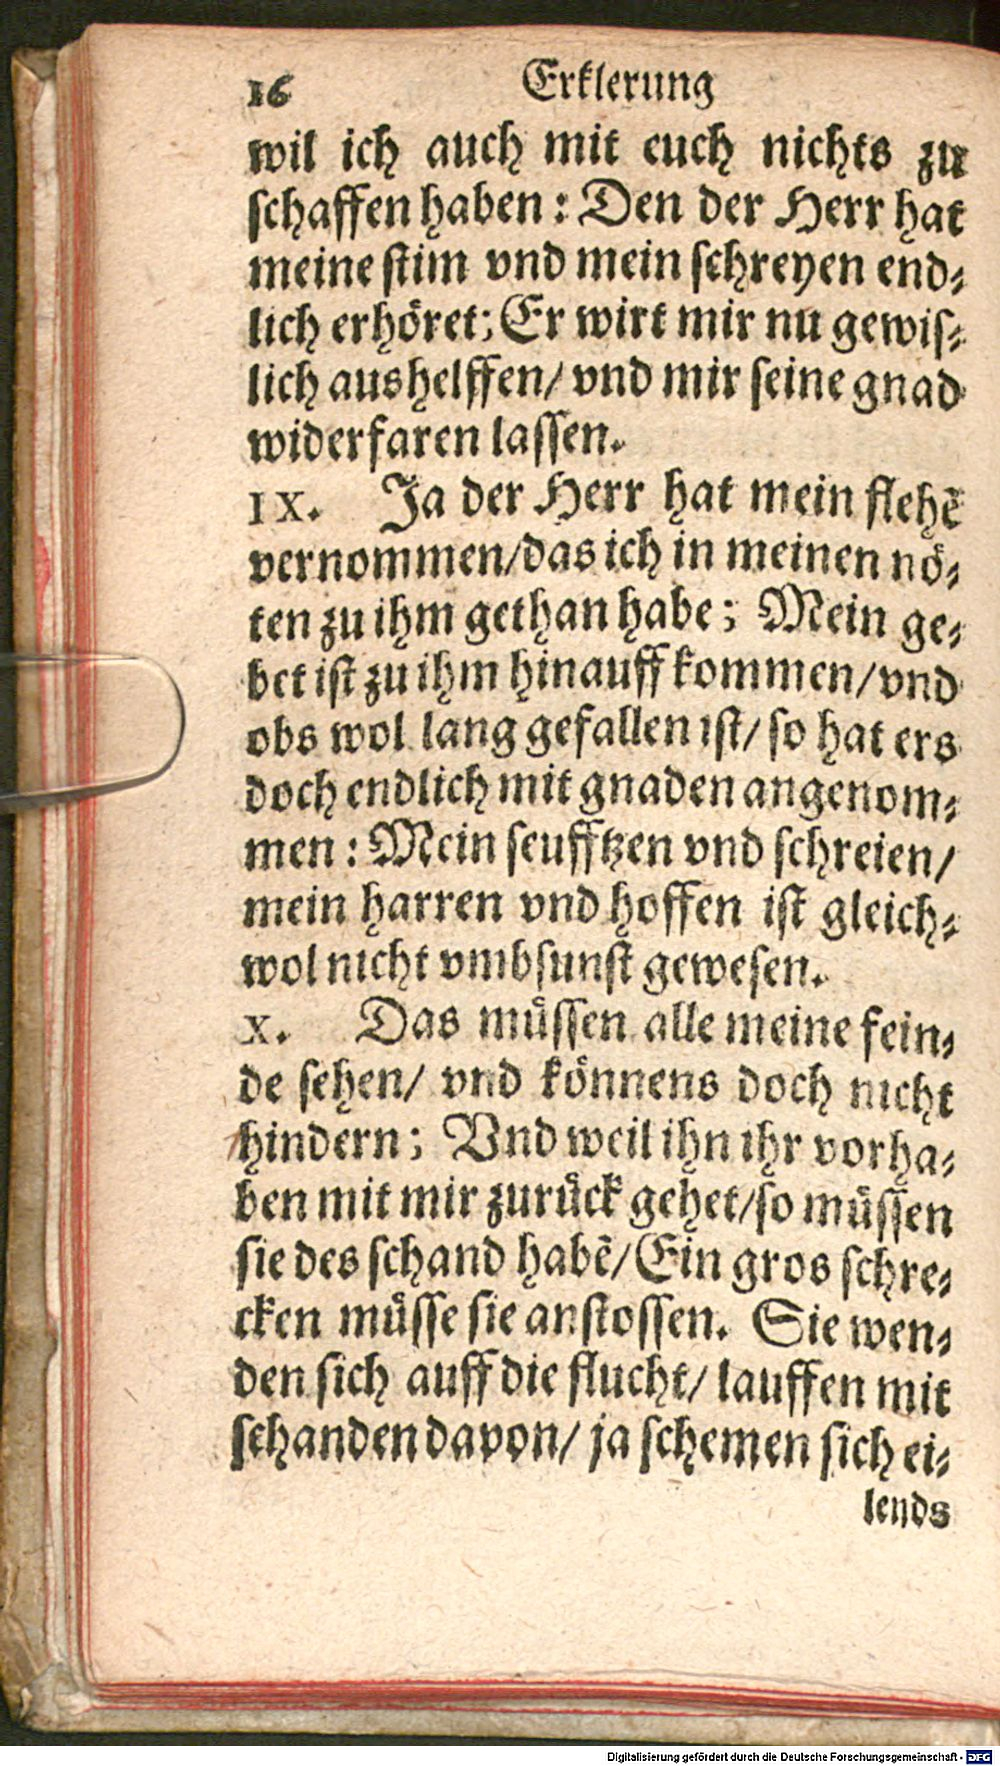 16 Erklerung
wil ich auch mit euch nichts zu
schaffen haben: Den der Herr hat
meine stim vnd mein schreyen end-
lich erhöret; Er wirt mir nu gewis-
lich aushelffen/ vnd mir seine gnad
widerfaren lassen.
IX. Ja der Herr hat mein flehē
vernommen/das ich in meinen nö-
ten zu ihm gethan habe; Mein ge-
bet ist zu ihm hinauff kommen/vnd
obs wol lang gefallen ist/ so hat ers
doch endlich mit gnaden angenom-
men: Mein seufftzen vnd schreien/
mein harren vnd hoffen ist gleich-
wol nicht vmbsunst gewesen.
X. Das müssen alle meine fein-
de sehen/ vnd können̄s doch nicht
hindern; Vnd weil ihn ihr vorha-
ben mit mir zurück gehet/so müssen
sie des schand habē/Ein gros schre-
cken müsse sie anstossen. Sie wen-
den sich auff die flucht/ lauffen mit
schanden davon/ ja schemen sich ei-
lends
Digitalisierung gefördert durch die Deutsche Forschungsgemeinschaft - DFG